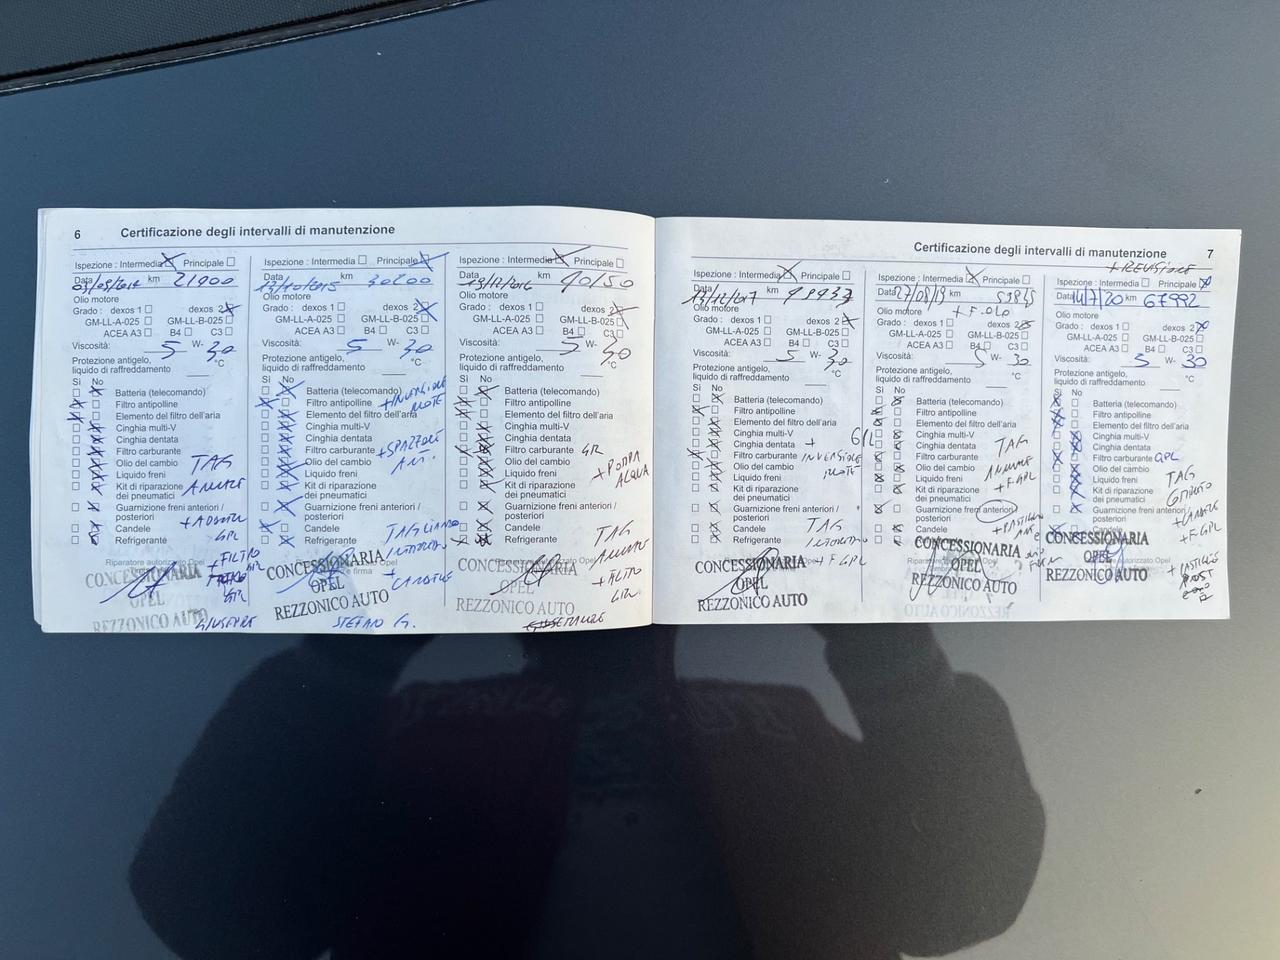 6 Certificazione degli intervalli di manutenzione
Ispezione : Intermedia Principale
Data 03/09/2014 km 21900
Olio motore
Grado : dexos 1 dexos 2
GM-LL-A-025 GM-LL-B-025
ACEA A3 B4 C3
Viscosità: 5 W- 30
Protezione antigelo,
liquido di raffreddamento °C
Sì No
Batteria (telecomando)
Filtro antipolline
Elemento del filtro dell'aria
Cinghia multi-V
Cinghia dentata
Filtro carburante
Olio del cambio TAG
Liquido freni
Kit di riparazione
dei pneumatici
Guarnizione freni anteriori /
posteriori
Candele GPL
Refrigerante
+ FILTRO
Riparatore autorizzato Opel
CONCESSIONARIA
OPEL
REZZONICO AUTO
GIUSEPPE
Ispezione : Intermedia Principale
Data 13/10/2015 km 30200
Olio motore
Grado : dexos 1 dexos 2
GM-LL-A-025 GM-LL-B-025
ACEA A3 B4 C3
Viscosità: 5 W- 30
Protezione antigelo,
liquido di raffreddamento °C
Sì No
Batteria (telecomando)
Filtro antipolline + INVERSIONE
Elemento del filtro dell'aria RUOTE
Cinghia multi-V
Cinghia dentata
Filtro carburante + SPAZZOLE
Olio del cambio ANT.
Liquido freni
Kit di riparazione
dei pneumatici
Guarnizione freni anteriori /
posteriori
Candele TAGLIANDO
Refrigerante
+ CANDELE
CONCESSIONARIA
OPEL
REZZONICO AUTO
STEFANO G.
Ispezione : Intermedia Principale
Data 19/12/2016 km 40150
Olio motore
Grado : dexos 1 dexos 2
GM-LL-A-025 GM-LL-B-025
ACEA A3 B4 C3
Viscosità: 5 W- 30
Protezione antigelo,
liquido di raffreddamento °C
Sì No
Batteria (telecomando)
Filtro antipolline
Elemento del filtro dell'aria
Cinghia multi-V
Cinghia dentata
Filtro carburante
Olio del cambio + POMPA
Liquido freni ACQUA
Kit di riparazione
dei pneumatici
Guarnizione freni anteriori /
posteriori
Candele TAG
Refrigerante
+ FILTRO
CONCESSIONARIA
OPEL
REZZONICO AUTO
Certificazione degli intervalli di manutenzione 7
Ispezione : Intermedia Principale
Data 13/12/2017 km
Olio motore
Grado : dexos 1 dexos 2
GM-LL-A-025 GM-LL-B-025
ACEA A3 B4 C3
Viscosità: 5 W- 30
Protezione antigelo,
liquido di raffreddamento °C
Sì No
Batteria (telecomando)
Filtro antipolline
Elemento del filtro dell'aria
Cinghia multi-V
Cinghia dentata +
Filtro carburante INVERSIONE
Olio del cambio RUOTE
Liquido freni
Kit di riparazione
dei pneumatici
Guarnizione freni anteriori /
posteriori
Candele TAG
Refrigerante
+ F.GPL
CONCESSIONARIA
OPEL
REZZONICO AUTO
Ispezione : Intermedia Principale
Data 27/08/19 km
Olio motore + F.OLIO
Grado : dexos 1 dexos 2
GM-LL-A-025 GM-LL-B-025
ACEA A3 B4 C3
Viscosità: 5 W- 30
Protezione antigelo,
liquido di raffreddamento °C
Sì No
Batteria (telecomando)
Filtro antipolline
Elemento del filtro dell'aria
Cinghia multi-V
Cinghia dentata TAG
Filtro carburante
Olio del cambio ANNUALE
Liquido freni + F.GPL
Kit di riparazione
dei pneumatici
Guarnizione freni anteriori /
posteriori
Candele
Refrigerante
CONCESSIONARIA
OPEL
REZZONICO AUTO
+ REVISIONE
Ispezione : Intermedia Principale
Data 14/7/20 km 67992
Olio motore
Grado : dexos 1 dexos 2
GM-LL-A-025 GM-LL-B-025
ACEA A3 B4 C3
Viscosità: 5 W- 30
Protezione antigelo,
liquido di raffreddamento °C
Sì No
Batteria (telecomando)
Filtro antipolline
Elemento del filtro dell'aria
Cinghia multi-V
Cinghia dentata
Filtro carburante GPL
Olio del cambio
Liquido freni TAG
Kit di riparazione
dei pneumatici
Guarnizione freni anteriori /
posteriori + CANDELE
Candele + F.GPL
Refrigerante
CONCESSIONARIA
OPEL
REZZONICO AUTO
+ PASTIGLIE
POST